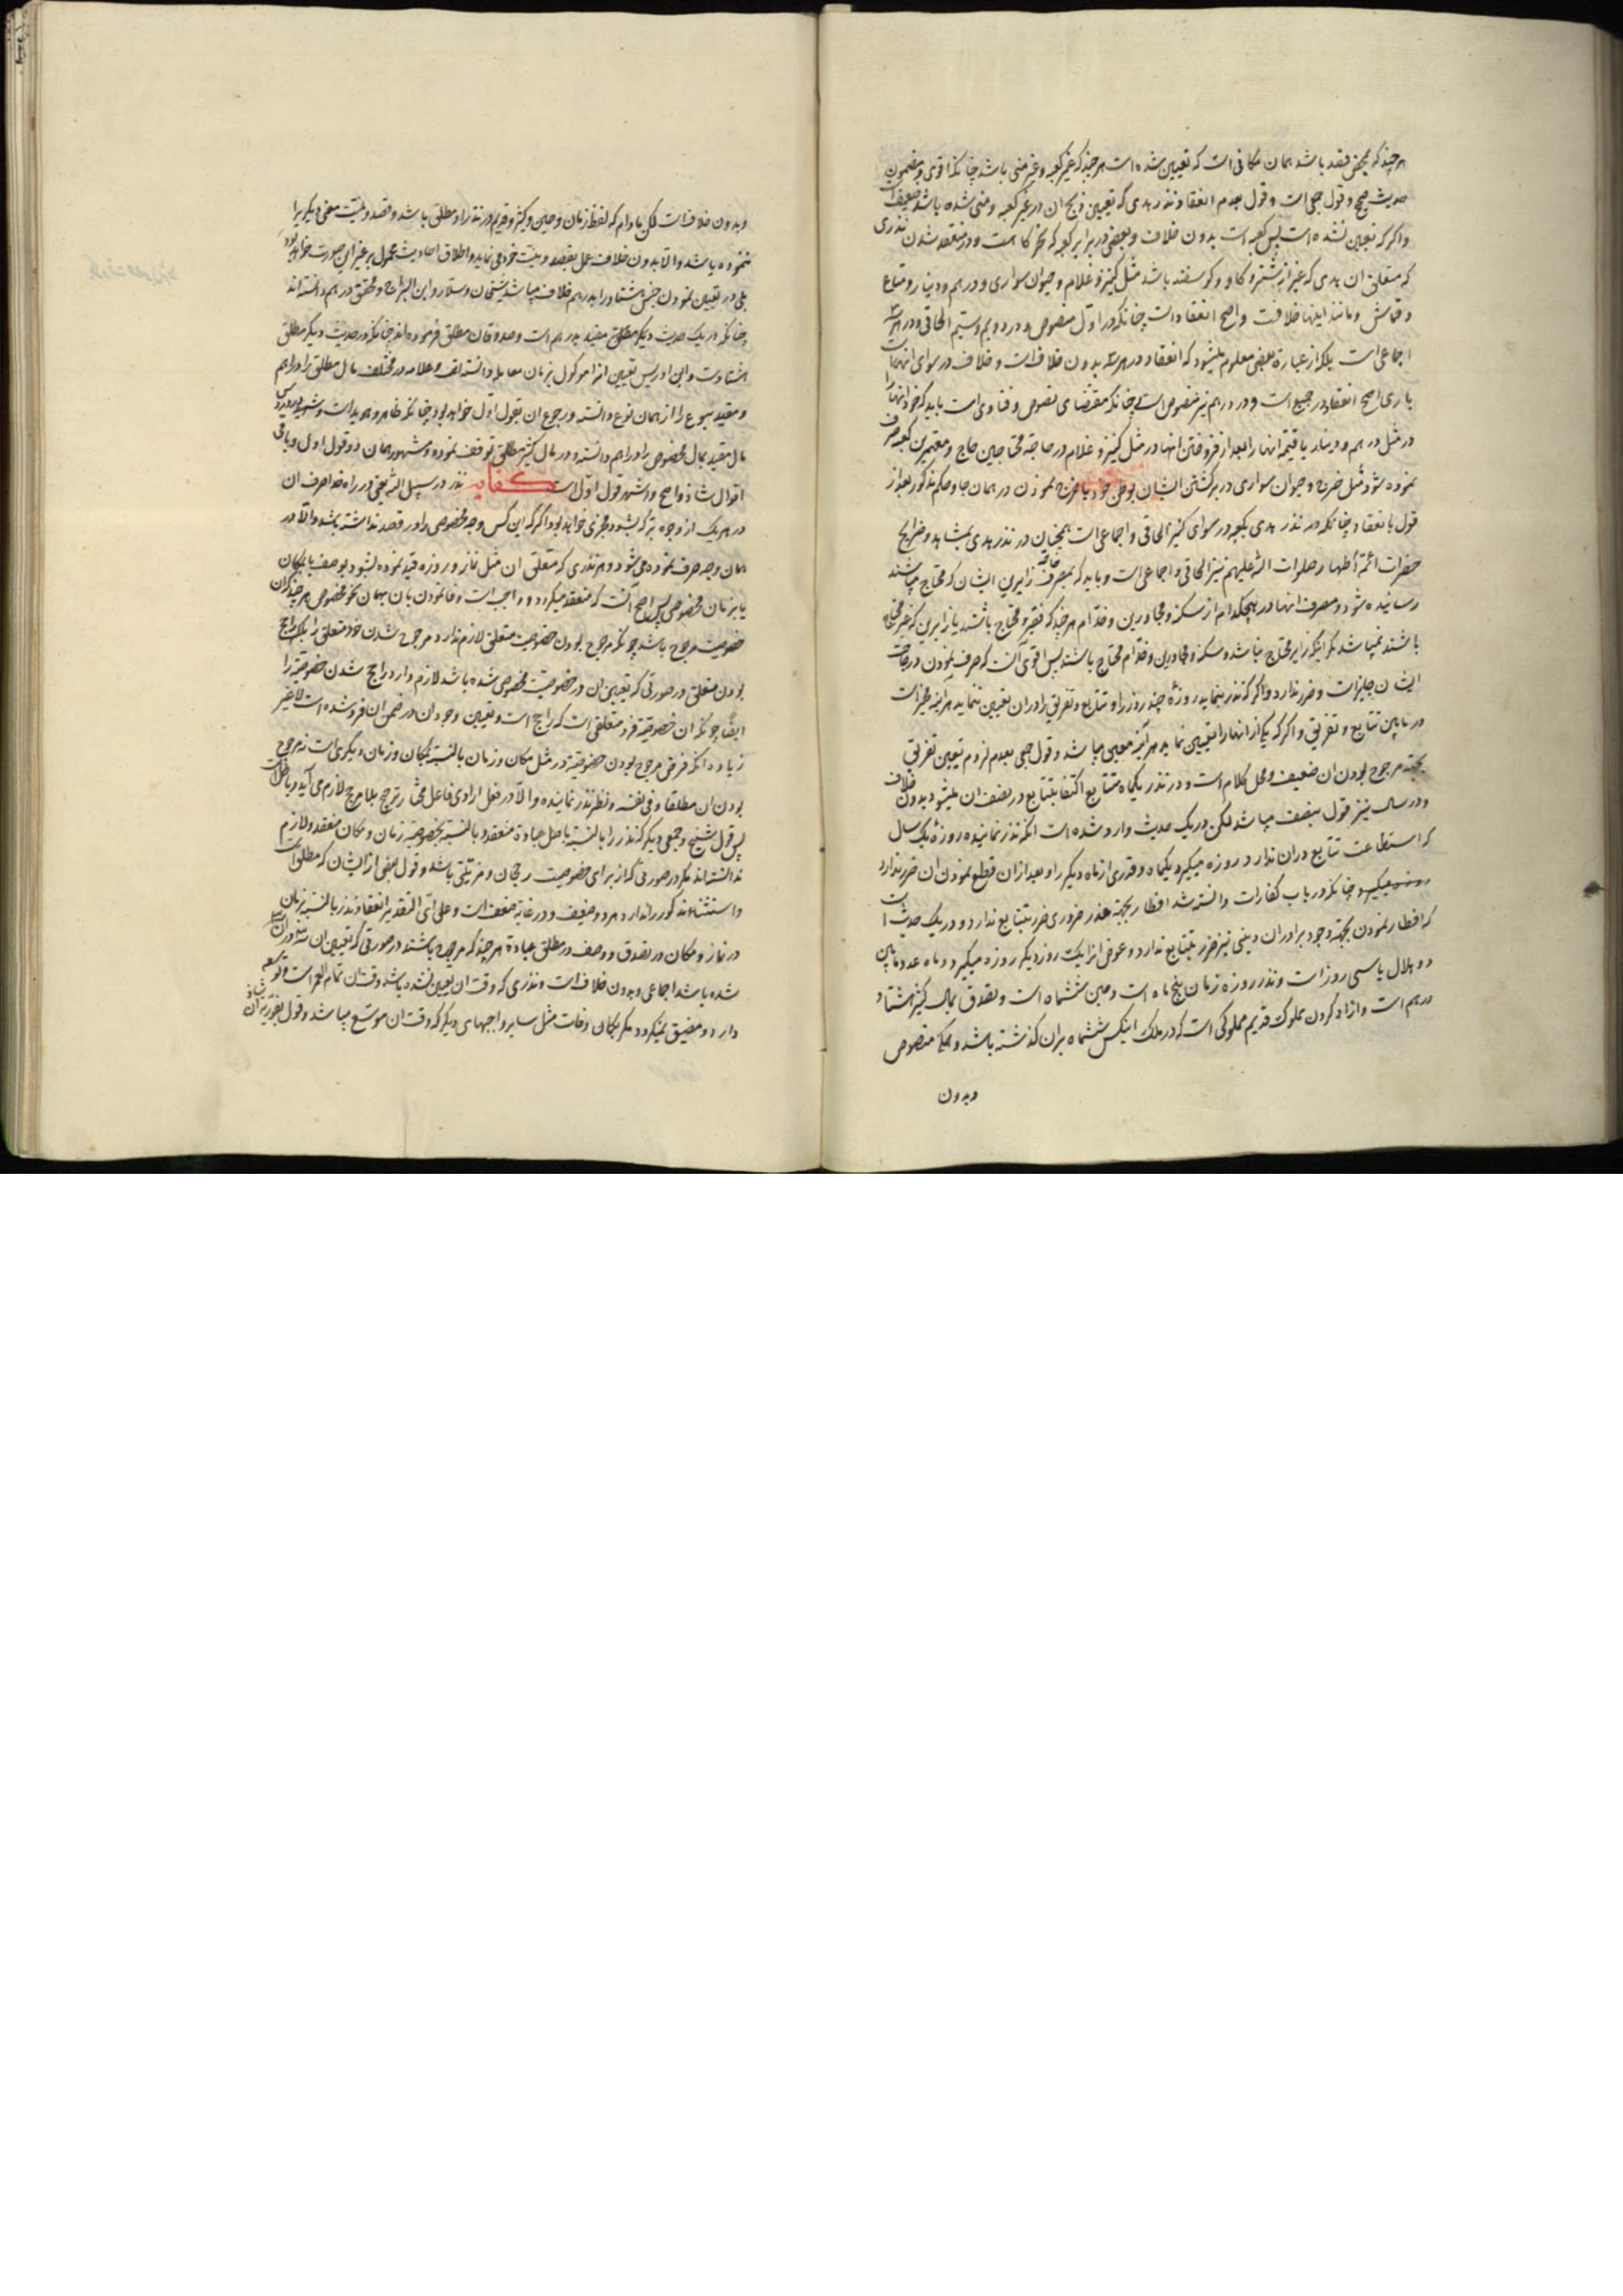 هر چند که بمحض قصد باشد همان مکانی است که تعیین شده است هر چند که غیر کعبه و غیر منی باشد چنانکه اقوی و مضمون
حدیث صحیح و قول جمعی است و قول بعدم انعقاد نذر هدی که تعیین ذبح ان در غیر کعبه و منی شده باشد ضعیف است
و اگر که تعیین نشده است پس کعبه است بدون خلاف و بعضی در برابر کعبه که نحرگاه است و در منعقد شدن نذری
که متعلق ان هدی که غیر از شتر و کاو و کوسفند باشد مثل کنیز و غلام و حیوان سواری و درهم و دینار و متاع
و قماش و مانند اینها خلافست واصح انعقاد است چنانکه در اول منصوص و در دویم و سیم الحاقی و در هر سه
اجماعی است بلکه از عبارة بعضی معلوم میشود که انعقاد در هر سه بدون خلاف است و خلاف در سوای انهاست
باری اصح انعقاد در جمیع است و در درهم نیز منصوص است چنانکه مقتضای نصوص و فتاوی است باید که خود انها را
در مثل درهم و دینار یا قیمة انها را بعد از فروختن انها در مثل کنیز و غلام در حاجة محتاجین حاج و معتمرین کعبه صرف
نموده شود مثل خرج و حیوان سواری در برکشتن ایشان بوطن خود یا خرج نمودن در همان جا و حکم مذکور بعد از
قول بانعقاد چنانکه در نذر هدی بکعبه در سوای کنیز الحاقی و اجماعی است همچنان در نذر هدی بمشاهد و ضرایح
حضرات ائمه اطهار صلوات الله علیهم نیز الحاقی و اجماعی است و باید که بمصرف خاصه زایرین ایشان که محتاج میباشند
رسانیده شود و مصرف انها در هیچکدام از سکنه و مجاورین و خدام هر چند که فقیر و محتاج باشند یا زایرین که غیر محتاج
باشند نمیباشد مکر اینکه زایر محتاج نباشد و سکنه و مجاورین و خدام محتاج باشند پس اقوی آنست که صرف نمودن در حاجت
ایشان جایز است و ضرر ندارد و اگر که نذر بنماید روزۀ چند روز را و تتابع و تفریق را در ان تعیین ننماید هراینه مخیر است
در مابین تتابع و تفریق و اکر که یکی از انها را تعیین نماید هراینه معین میباشد و قول جمعی بعدم لزوم تعیین تفریق
بجهة مرجوح بودن ان ضعیف و محل کلام است و در نذر یکماه متتابع اکتفا بتتابع در نصف ان میشود بدون خلاف
و در سال نیز قول بنصف میباشد لکن در یک حدیث وارد شده است انکه نذر نماینده روزۀ یک سال
که استطاعت تتابع دران ندارد روزه میکیرد یکماه و قدری از ماه دیکر را و بعد از ان قطع نمودن ان ضرر ندارد
چنانکه در باب کفارات دانسته شد افطار بجهة عذر ضروری ضرر بتتابع ندارد و در یک حدیث است
که افطار نمودن بجهة وجود برادران دینی نیز ضرر بتتابع ندارد و عوض انرا یک روز دیکر روزه میکیرد و ماه عدد مابین
دو هلال یا سی روز است و نذر روزه زمان پنج ماه است و حین ششماه است و تصدق بمال کثیر هشتاد
درهم است و ازاد کردن مملوک قدیم مملوکی است که در ملک اینکس ششماه بران کذشته باشد و بحکم منصوص
وبدون
وبدون خلاف است لکن مادام که لفظ زمان و حین و کثیر و قدیم در نذر او مطلق باشد و قصد و نیت معنی دیکر را
ننموده باشد و الا بدون خلاف عمل بقصد و نیت خود می نماید و اطلاق احادیث محمول بر غیر این صورت خواهد بود
بلی در تعیین نمودن جنس هشتاد را بدرهم خلاف میباشد شیخان و سلار و ابن البراج و محقق درهم دانسته اند
چنانکه در یک حدیث دیکر مطلق مقید بدرهم است و صدوقان مطلق فرموده اند چنانکه در حدیث دیکر مطلق
هشتاد است و ابن ادریس تعیین انرا موکول بزمان معامله دانسته است و علامه در مختلف مال مطلق را دراهم
و مقید بنوع را از همان نوع دانسته و رجوع ان بقول اول خواهد بود چنانکه ظاهر و هویدا است و شهید در دروس
مال مقید بمال مخصوص را دراهم دانسته و در مال کثیر مطلق توقف نموده و مشهور همان دو قول اول و باقی
اقوال شاذ واصح و اشهر قول اول است کفایه نذر در سبیل الله یعنی در راه خدا صرف ان
در هر یک از وجوه بر که بشود مجزی خواهد بود اگر که این کس وجه مخصوص را در قصد نداشته باشد و الا در
همان وجه صرف نموده می شود و هر نذری که متعلق ان مثل نماز و روزه قید نموده بشود بوصف یا بمکان
یا بزمان مخصوص پس اصح آنست که منعقد میکردد و واجب است وفا نمودن بان بهمان نحو مخصوص هر چند که ان
خصوصیت مرجوح باشد چونکه مرجوح بودن خصوصیت متعلق لازم ندارد مرجوح شدن خود متعلق را بلکه راجح
بودن متعلق در صورتی که تعیین ان در خصوصیت مخصوص شده باشد لازم دارد راجح شدن خصوصیة را
ایضا چونکه ان خصوصیة فرد متعلقی است که راجح است و تعیین وجود ان در ضمن ان فرد شده است لا غیر
زیاده انکه فرض مرجوح بودن خصوصیة در مثل مکان و زمان بالنسبة بمکان و زمان دیکری است نه مرجوح
بودن ان مطلقا و فی نفسه و نظر نذر نماینده و الا در فعل ارادی فاعل مختار ترجیح بلا مرجح لازم می آید و باطل است
پس قول شیخ و جمعی دیکر که نذر را بالنسبة باصل عبادة منعقد و بالنسبة بخصوصیة زمان و مکان منعقد و لازم
ندانسته اند مکر در صورتی که از برای خصوصیت رجحان و مزیتی باشد و قول بعضی از ایشان که مطلق است
و استثناء مذکور را ندارد هر دو ضعیف و در غایة ضعف است و علی ای التقدیر انعقاد نذر بالنسبة بزمان
در نماز و مکان در تصدق و وصف در مطلق عبادة هر چند که مرجوح باشند در صورتی که تعیین ان سه در ان سه
شده باشد اجماعی و بدون خلاف است و نذری که وقت ان تعیین نشده باشد وقت ان تمام العمر است و توسعه
دارد و مضیق نمیکردد مکر بکمان وفات مثل سایر واجبهای دیکر که وقت ان موسع میباشد و قول بفوریة ان شاذ